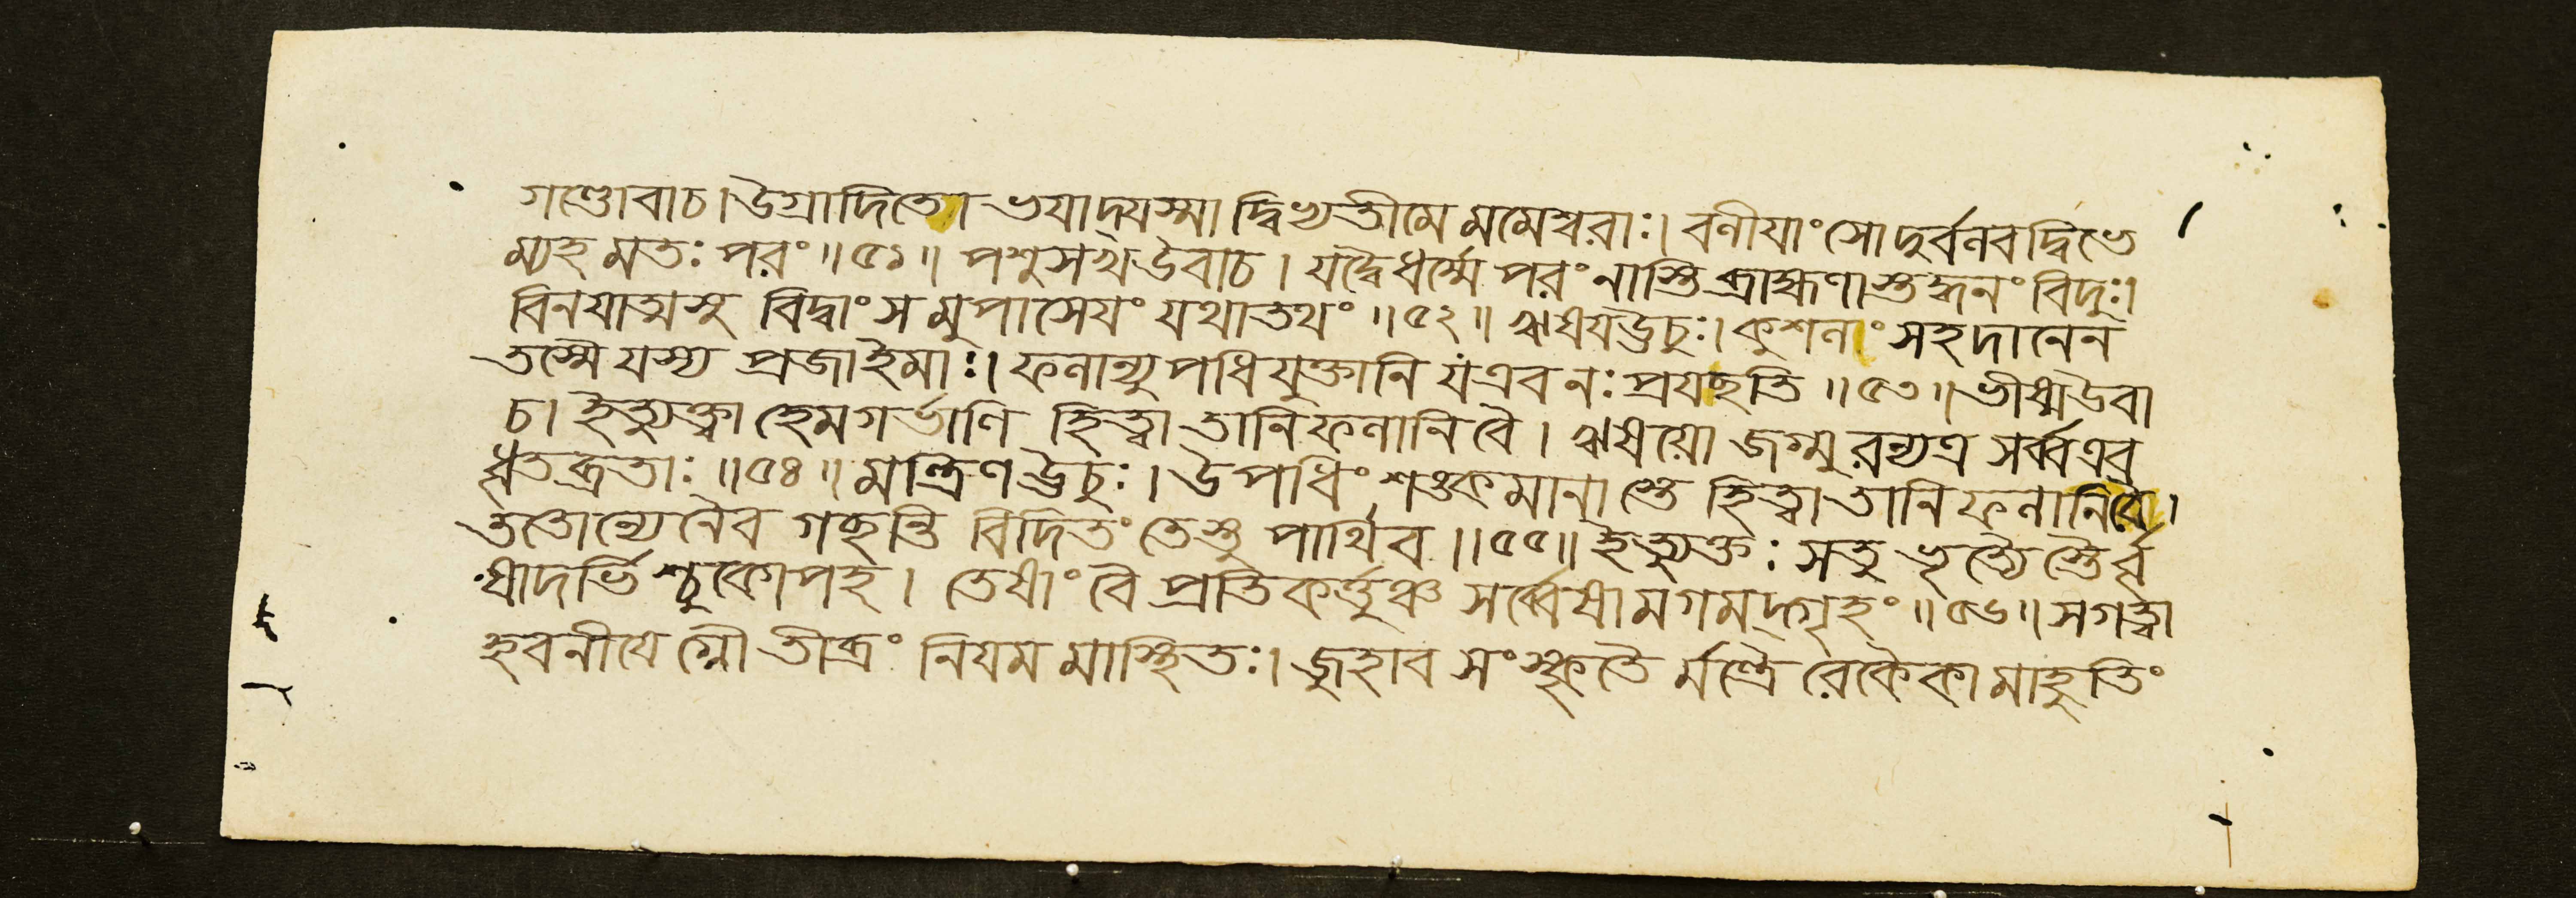 গণ্ডোবাচ। উগ্রাদিতো ভযাদ্যস্মা দ্বিখ্যতীমে মমেশ্বরাঃ। বনীযাংসোদুর্বনবদ্বিভে
ম্যহ মতঃ পরং॥৫১॥ পশুসখউবাচ। যদ্বৈধর্ম্মে পরং নাস্তি ব্রাহ্মণাস্তদ্ধনং বিদুঃ।
বিনযাত্মসু বিদ্বাংস মুপাসেযং যথাতথং॥৫২॥ ঋষযউচুঃ। কুশনাং সহদানেন
তস্মৈ যস্য প্রজাইমাঃ। ফনান্যুপধিযুক্তানি যএবনঃ প্রযছতি॥৫৩॥ ভীষ্মউবা
চ। ইত্যুক্ত্বা হেমগর্ভাণি হিত্বা তানিফনানিবৈ। ঋষয়ো জগ্মুরন্যত্র সর্ব্বএব
ধৃতব্রতাঃ॥৫৪॥ মন্ত্রিণউচুঃ। উপধিং শঙ্কমানাস্তে হিত্বাতানিফনানিবৈ।
ততোন্যেনৈব গছন্তি বিদিতং তেস্তু পার্থিব॥৫৫॥ ইত্যুক্তঃ সতু ভৃত্যৈস্তৈর্বৃ
ষাদর্ভিশ্চুকোপহ। তেষাং বৈ প্রতিকর্ত্তুঞ্চ সর্ব্বেষামগমদ্গৃহং॥৫৬॥ সগত্বা
হবনীযেগ্নৌ তীব্রং নিযমমাস্থিতঃ। জুহাব সংস্কৃতৈ র্মন্ত্রৈ রেকৈকামাহুতিং